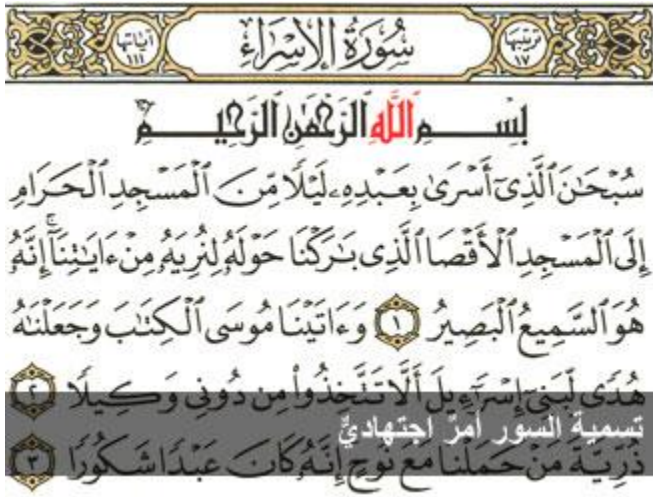 ترتيبها ١٧ سُورَةُ الإِسْرَاءِ آياتها ١١١
بِسْمِ ٱللَّهِ ٱلرَّحْمَٰنِ ٱلرَّحِيمِ
سُبْحَٰنَ ٱلَّذِىٓ أَسْرَىٰ بِعَبْدِهِۦ لَيْلًا مِّنَ ٱلْمَسْجِدِ ٱلْحَرَامِ
إِلَى ٱلْمَسْجِدِ ٱلْأَقْصَا ٱلَّذِى بَٰرَكْنَا حَوْلَهُۥ لِنُرِيَهُۥ مِنْ ءَايَٰتِنَآ ۚ إِنَّهُۥ
هُوَ ٱلسَّمِيعُ ٱلْبَصِيرُ ١ وَءَاتَيْنَا مُوسَى ٱلْكِتَٰبَ وَجَعَلْنَٰهُ
هُدًى لِّبَنِىٓ إِسْرَٰٓءِيلَ أَلَّا تَتَّخِذُوا۟ مِن دُونِى وَكِيلًا ٢
تسمية السور أمرٌ اجتهاديٌّ
ذُرِّيَّةَ مَنْ حَمَلْنَا مَعَ نُوحٍ إِنَّهُۥ كَانَ عَبْدًا شَكُورًا ٣